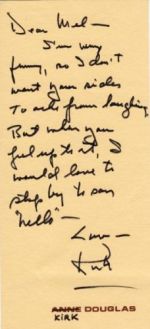 Dear Mel —
I'm very
funny, so I don't
want your sides
to ache from laughing
But when you
feel up to it, I
would love to
stop by to say
"hello" —
Love —
Kirk
ANNE DOUGLAS
KIRK